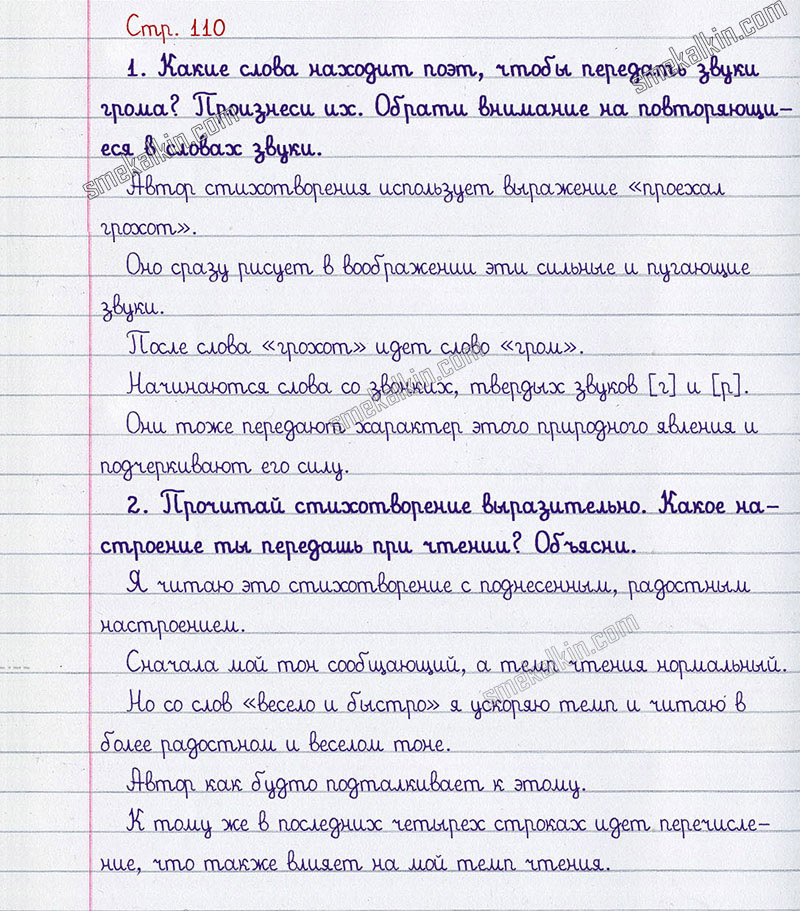 Стр. 110
1. Какие слова находит поэт, чтобы передать звуки
грома? Произнеси их. Обрати внимание на повторяющи-
еся в словах звуки.
Автор стихотворения использует выражение «проехал
грохот».
Оно сразу рисует в воображении эти сильные и пугающие
звуки.
После слова «грохот» идет слово «гром».
Начинаются слова со звонких, твердых звуков [г] и [р].
Они тоже передают характер этого природного явления и
подчеркивают его силу.
2. Прочитай стихотворение выразительно. Какое на-
строение ты передашь при чтении? Объясни.
Я читаю это стихотворение с поднесенным, радостным
настроением.
Сначала мой тон сообщающий, а темп чтения нормальный.
Но со слов «весело и быстро» я ускоряю темп и читаю в
более радостном и веселом тоне.
Автор как будто подталкивает к этому.
К тому же в последних четырех строках идет перечисле-
ние, что также влияет на мой темп чтения.
smekalkin.com
smekalkin.com
smekalkin.com
smekalkin.com